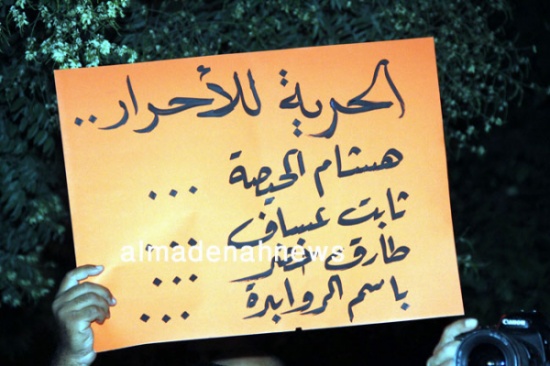 الحرية للأحرار..
هشام الحيصة ...
ثابت عساف ...
almadenahnews
طارق خضر ...
باسم الروابدة ...
Canon